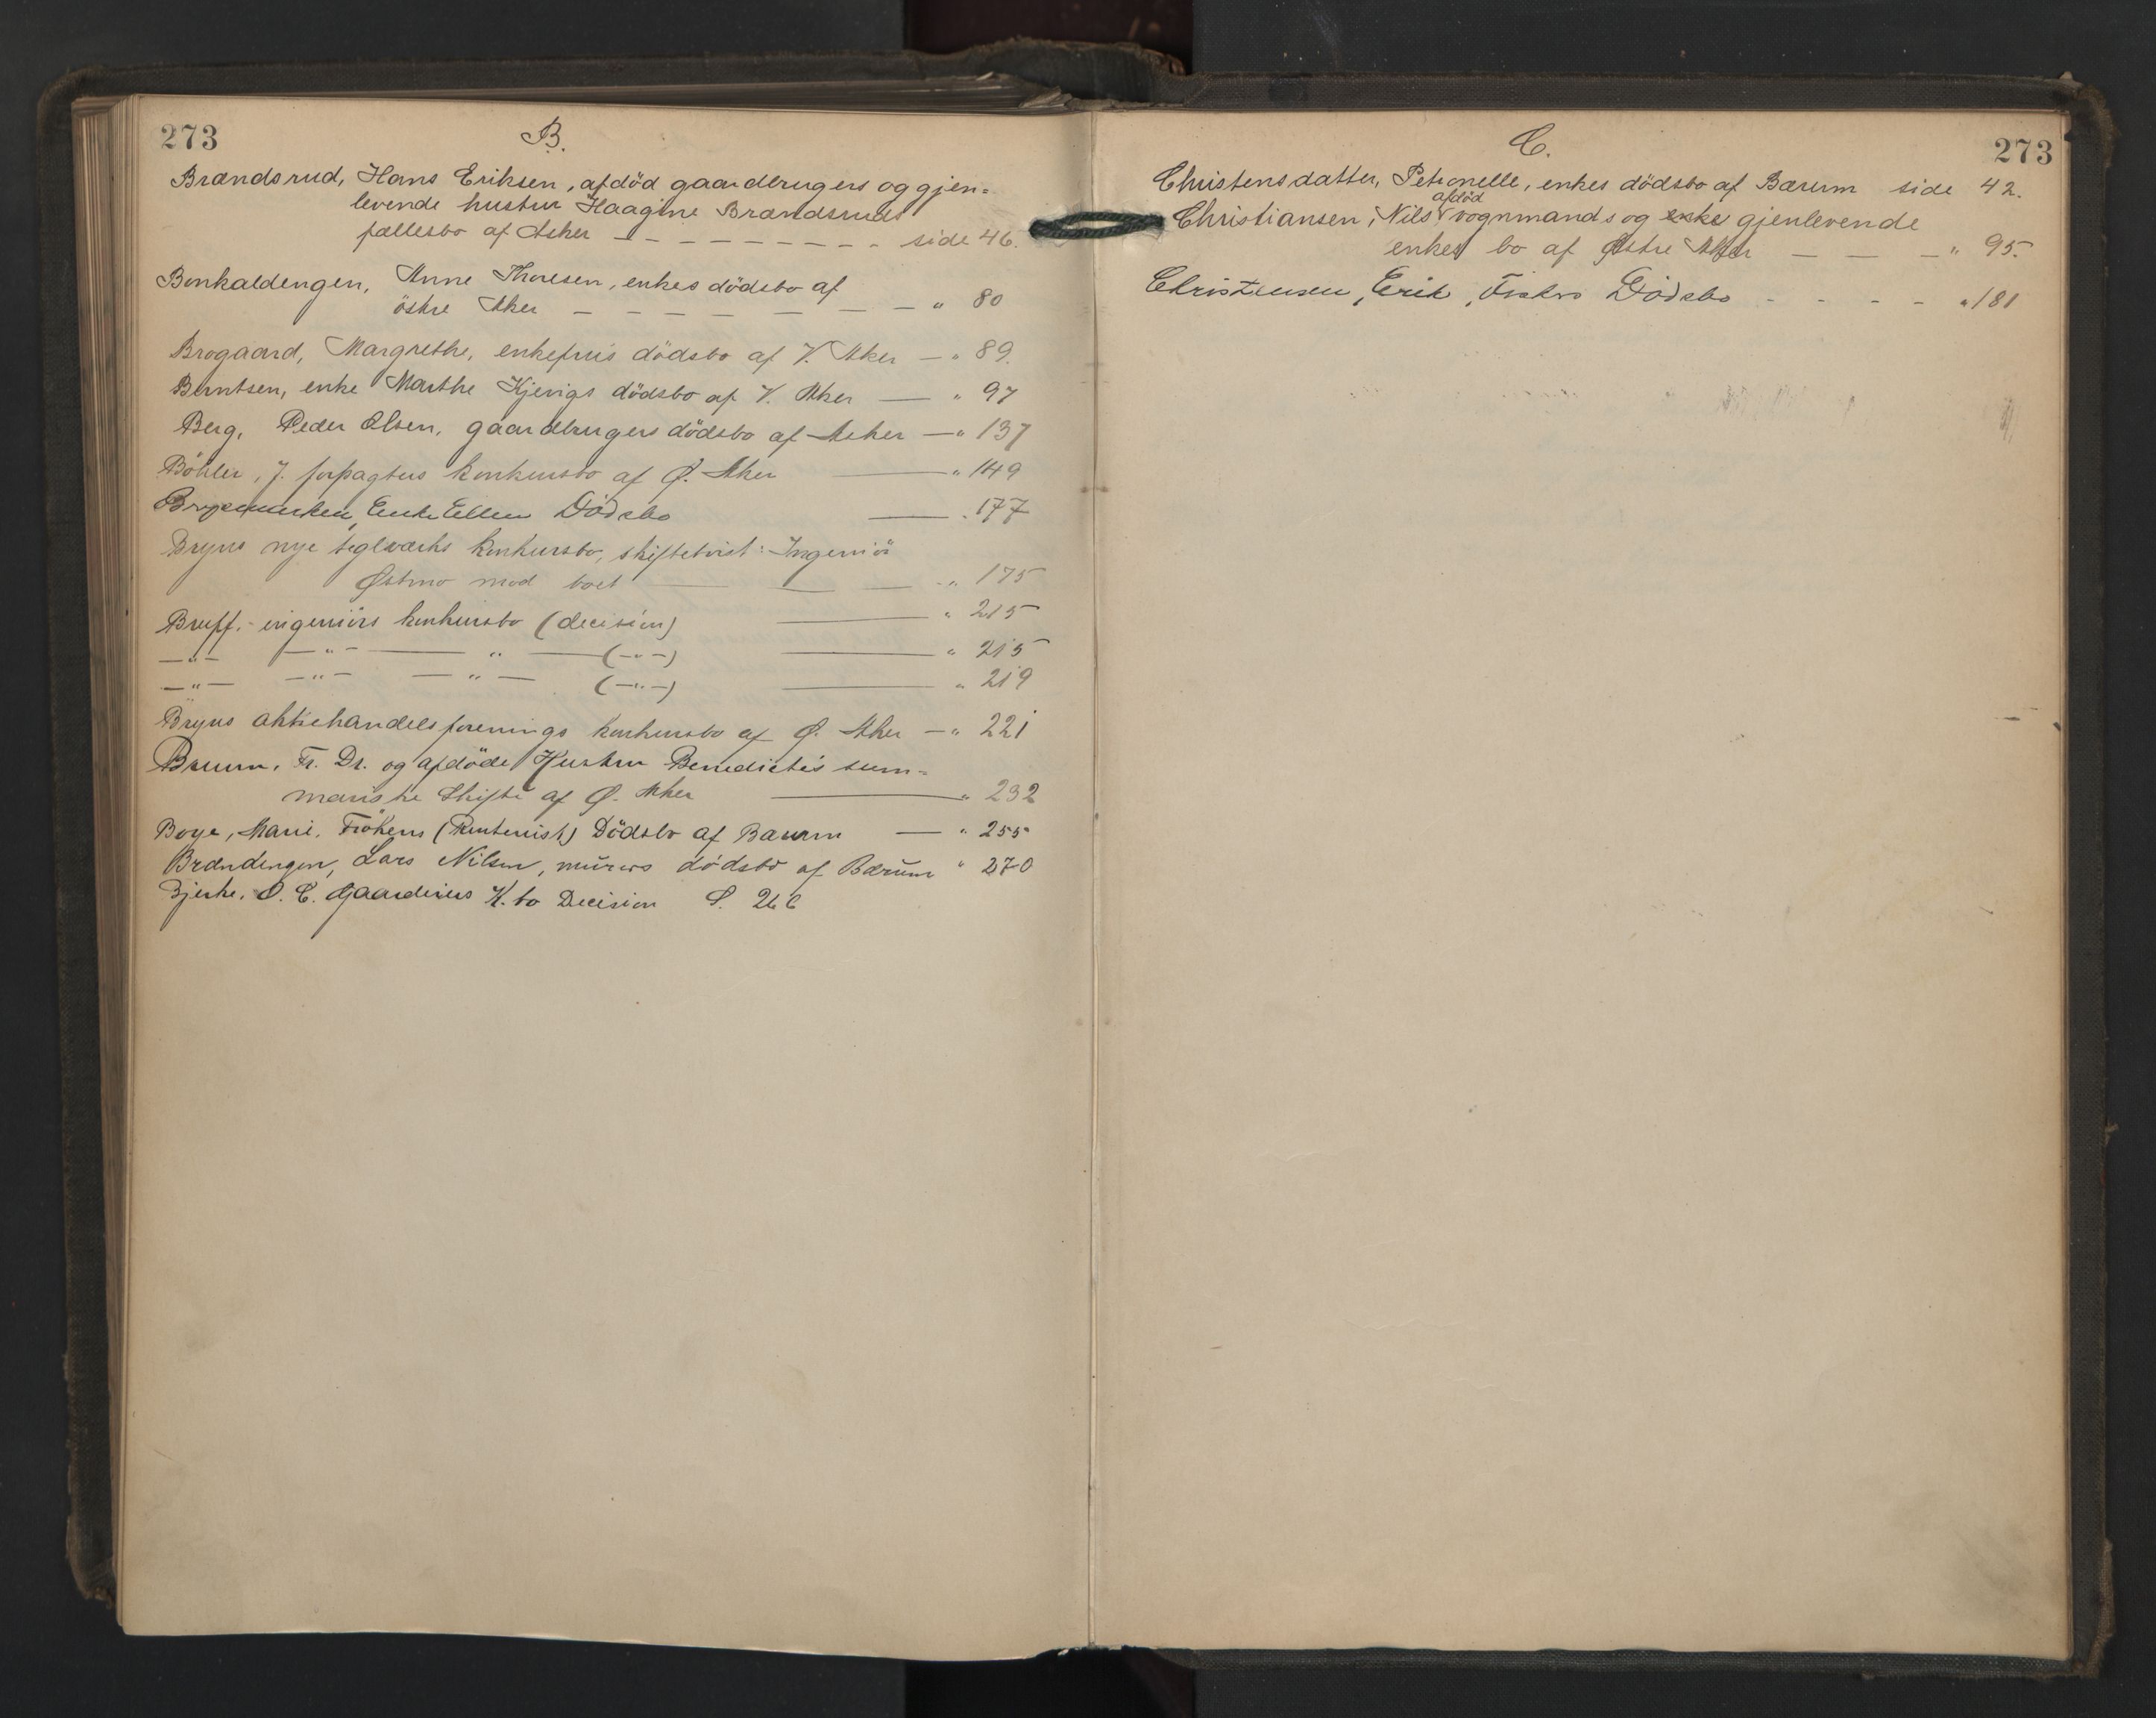 273
B.
Brændsrud, Hans Eriksen, afdöd gaardbrugers og gjen=
levende hustru Haagine Brændsruds
fællesbo af Asker — — — — — — — — side 46.
Bonkaldengen, Anne Thoresen, enkes dödsbo af
östre Aker — — — — — — — " 80
Brogaard, Margrethe, enkefrus dödsbo af V. Aker — " 89.
Berntsen, enke Marthe Kjerigs dödsbo af V. Aker — " 97
Berg, Peder Olsen, gaardbrugers dödsbo af Asker — " 137
Böhler, J. forpagters konkursbo af Ø. Aker — " 149
Enke Ellen Dödsbo — " 177
Bryns nye teglværks konkursbo, skiftetvist: Ingeniör
Østmo mod boet — — — " 175
Breiff. ingeniörs konkursbo (decision) — " 215
— " — — " — — " — (— " —) — " 215
— " — — " — — " — (— " —) — " 219
Bryns aktiehandelsforenings konkursbo af Ø. Aker — " 221
Fr. Dr. og afdöde Hustru Benedicte's sum=
mariske Skifte af Ø. Aker — " 232
Boye, Marie, Frökens (Rentenist) Dödsbo af Bærum — " 255
Brændengen, Lars Nilsen, murers dödsbo af Bærum " 270
Bjerke, O. C. Gaardeiers K.bo Decision S. 266
273
C.
Christensdatter, Petronelle, enkes dödsbo af Bærum side 42.
afdöd
Christiansen, Nils vognmands og enke gjenlevende
enkes bo af Østre Aker — — — " 95.
Christensen, Erik, Fiskers Dödsbo - - - - " 181